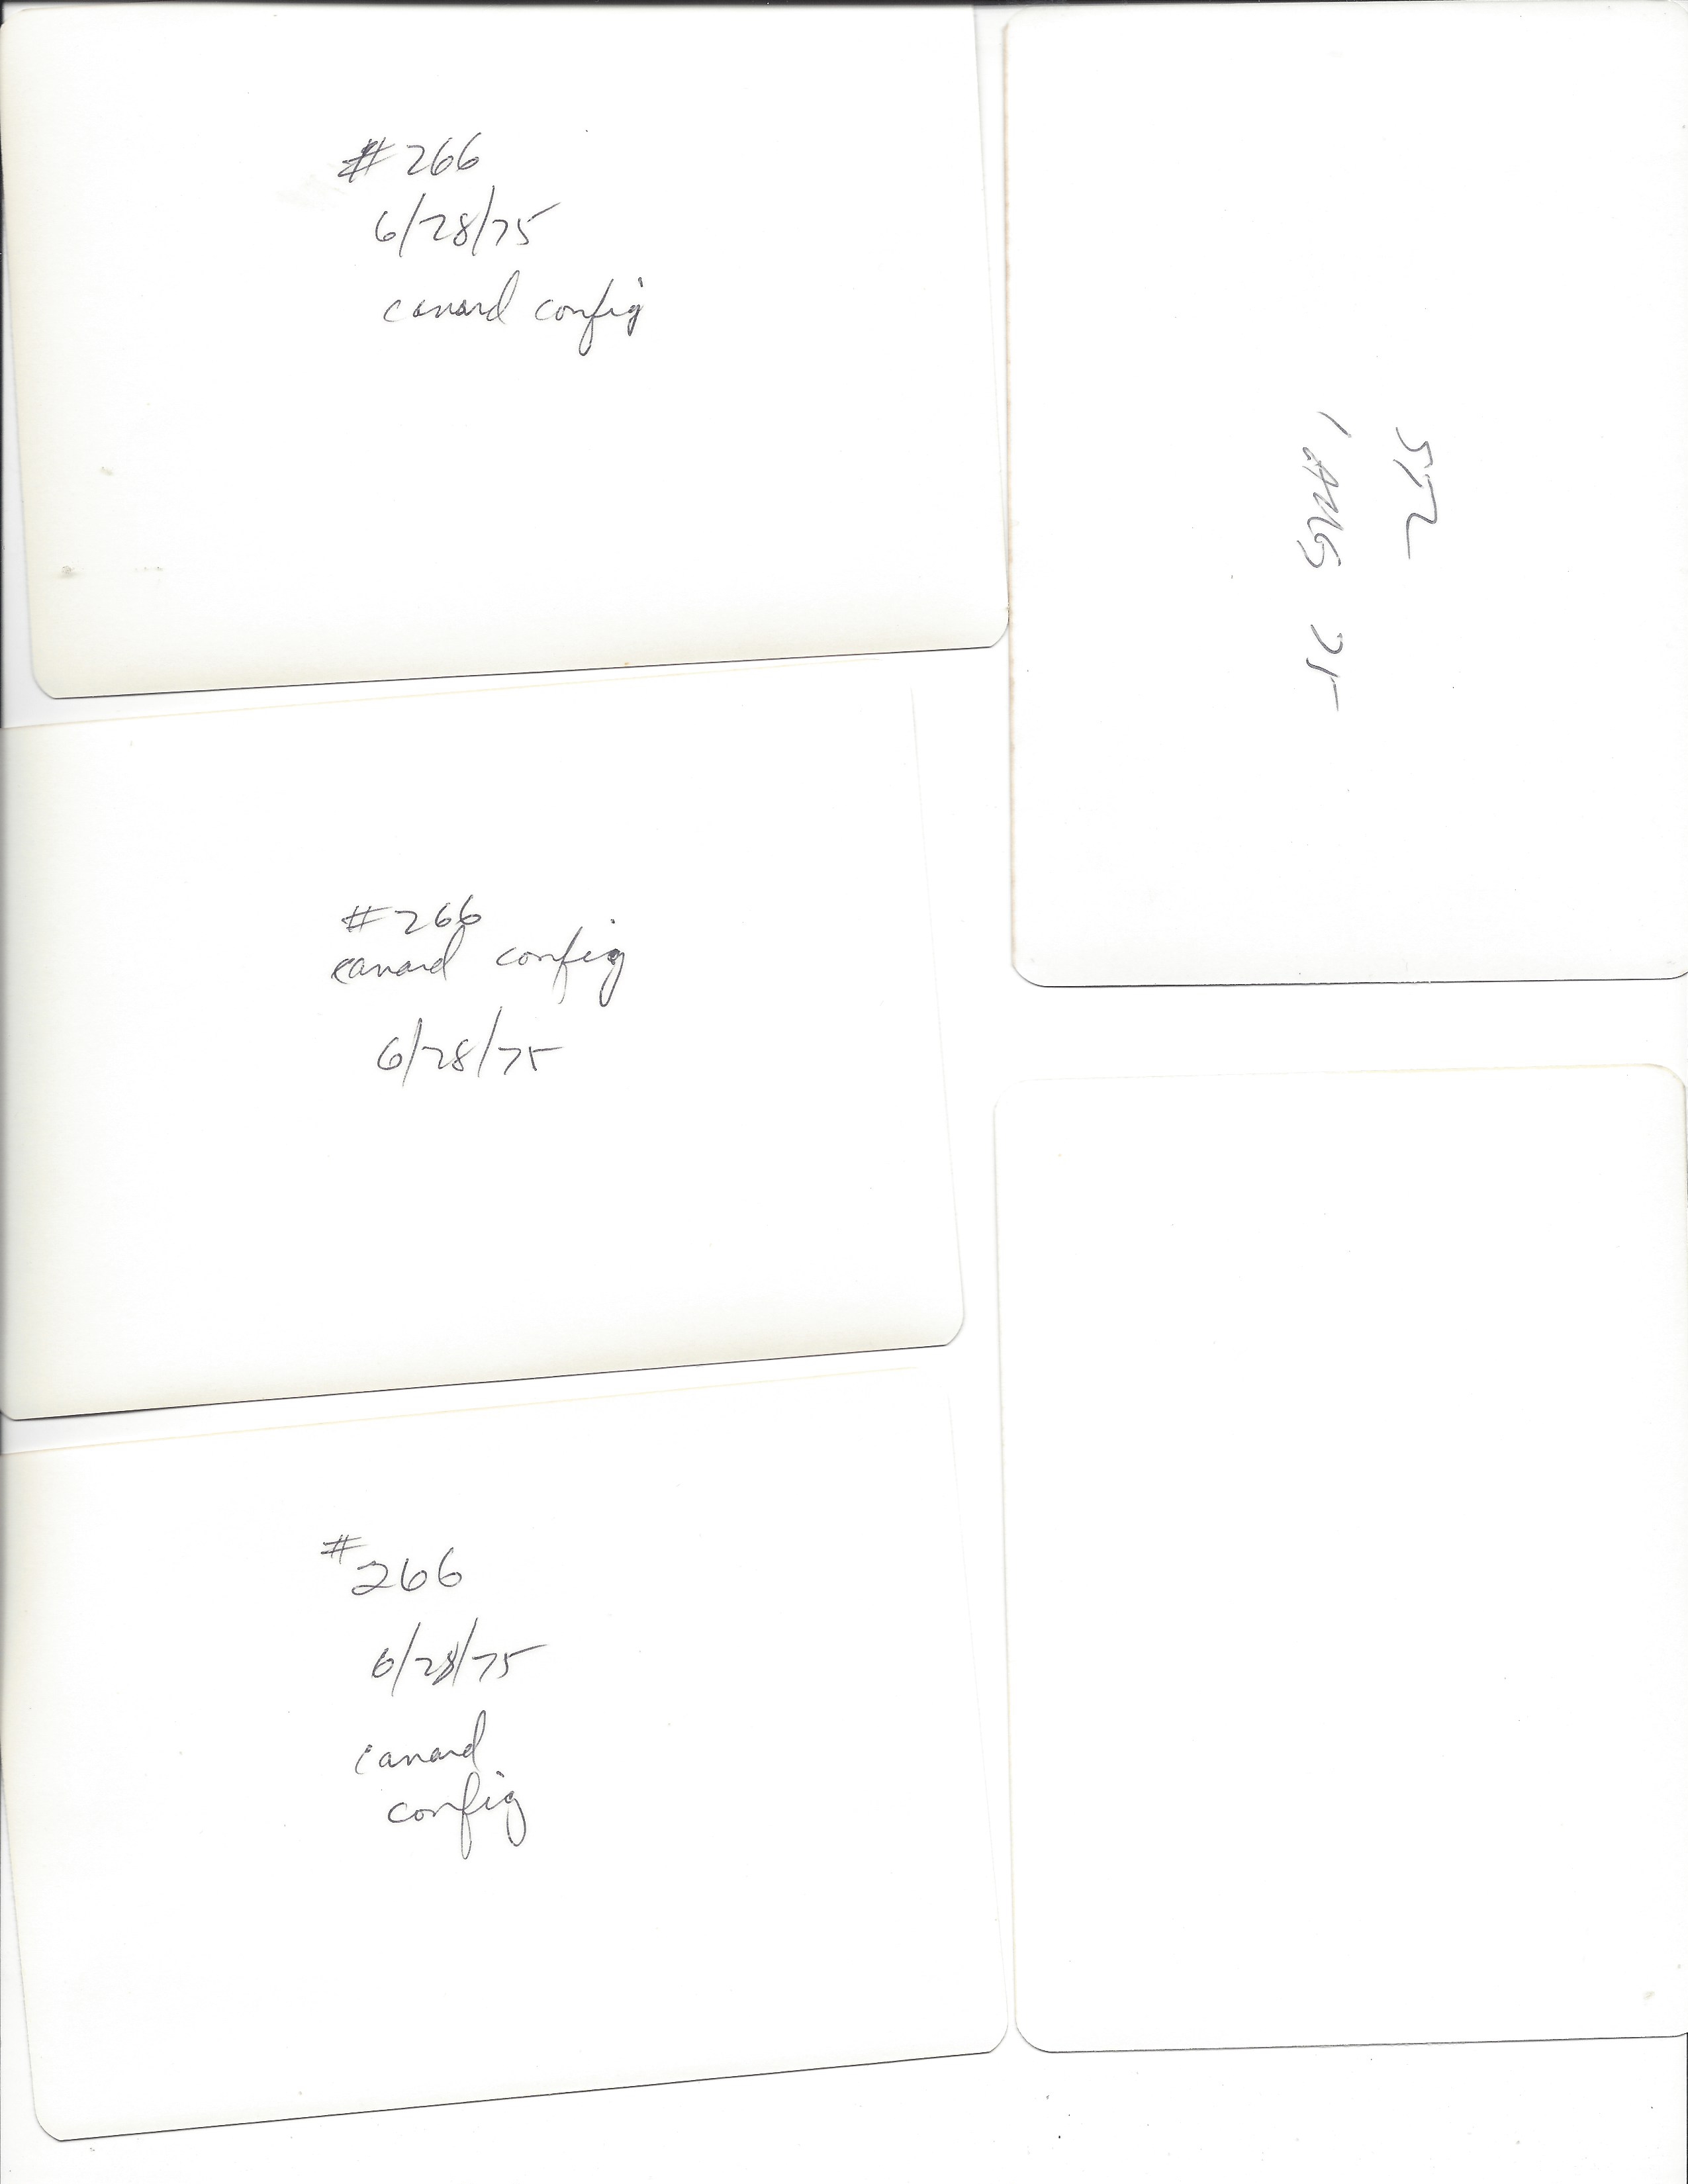 # 266
6/28/75
canard config
# 266
canard config
6/28/75
#
266
6/28/75
canard
config
572
1 AUG 75